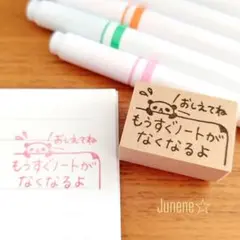 おしえてね
もうすぐノートが
なくなるよ
おしえてね
もうすぐノートが
なくなるよ
Junene☆